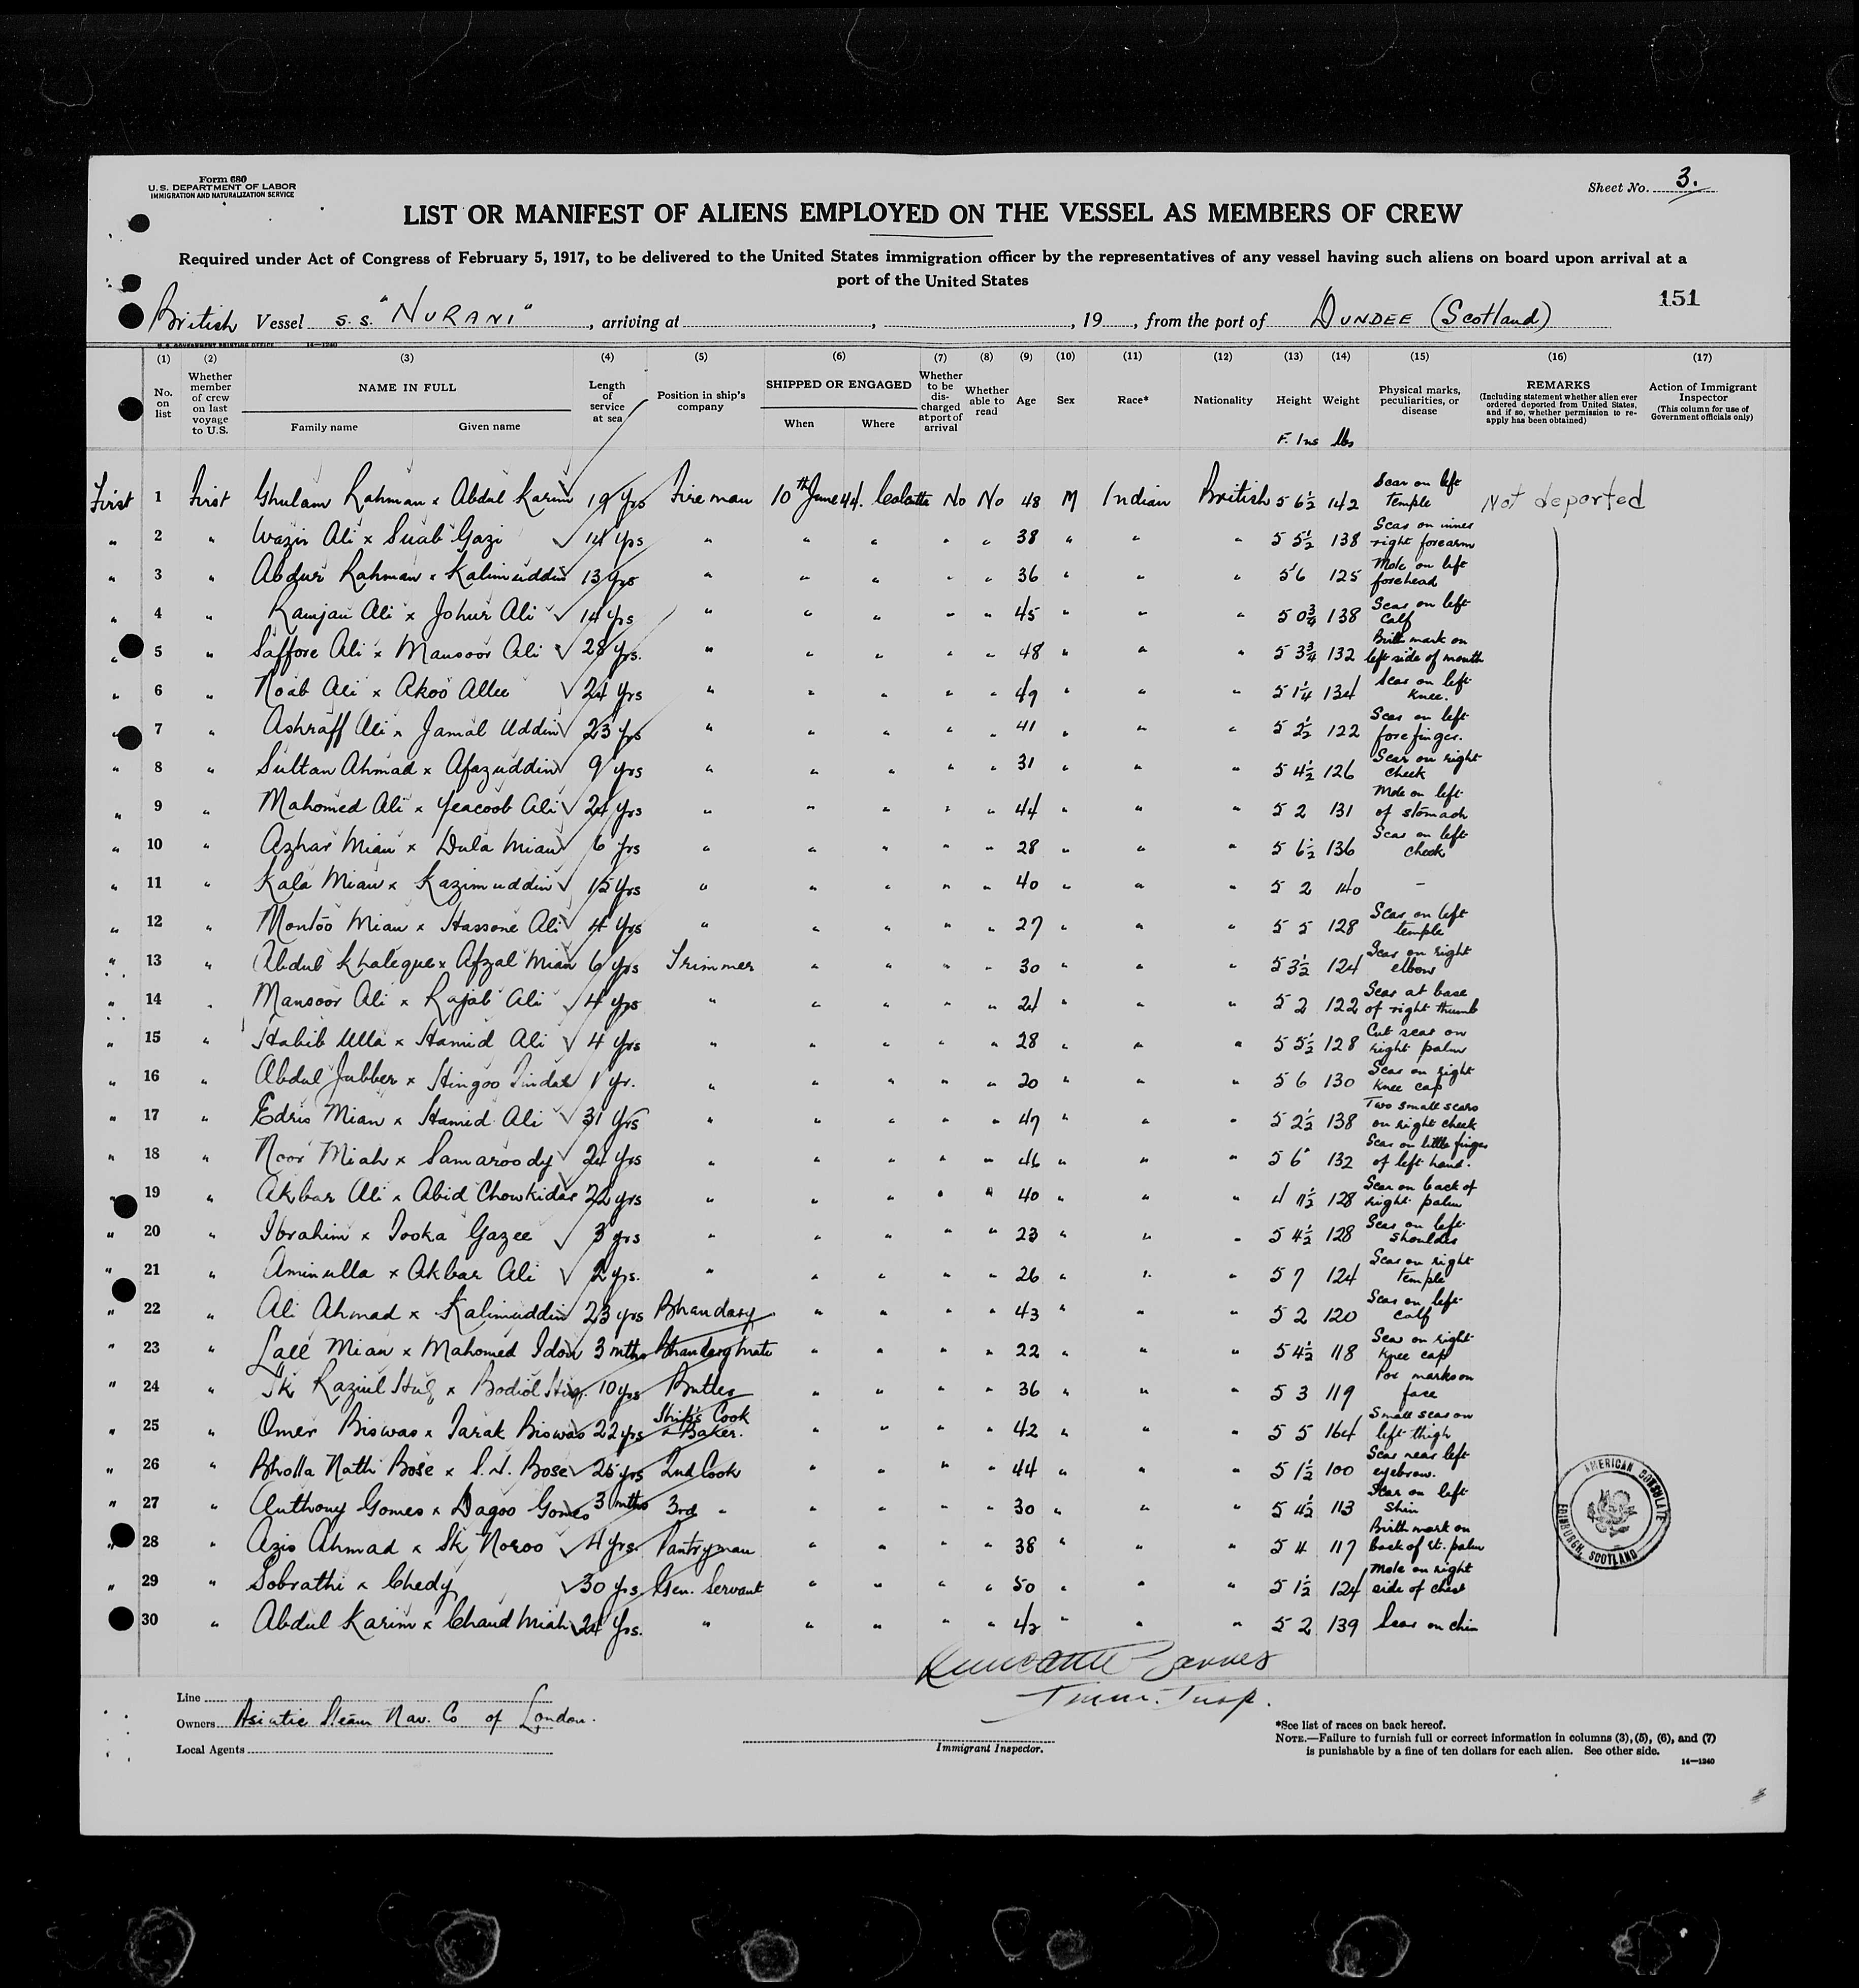 Form 680
U. S. DEPARTMENT OF LABOR
IMMIGRATION AND NATURALIZATION SERVICE
Sheet No. 3.
LIST OR MANIFEST OF ALIENS EMPLOYED ON THE VESSEL AS MEMBERS OF CREW
Required under Act of Congress of February 5, 1917, to be delivered to the United States immigration officer by the representatives of any vessel having such aliens on board upon arrival at a
port of the United States
151
British Vessel S.S. "NURANI", arriving at , , 19 , from the port of DUNDEE (Scotland)
U. S. GOVERNMENT PRINTING OFFICE 14—1240
(1) (2) (3) (4) (5) (6) (7) (8) (9) (10) (11) (12) (13) (14) (15) (16) (17)
No. on list
Whether member of crew on last voyage to U.S.
NAME IN FULL
Family name Given name
Length of service at sea
Position in ship's company
SHIPPED OR ENGAGED
When Where
Whether to be discharged at port of arrival
Whether able to read
Age
Sex
Race*
Nationality
Height
Weight
Physical marks, peculiarities, or disease
REMARKS
(Including statement whether alien ever ordered deported from United States, and if so, whether permission to re-apply has been obtained)
Action of Immigrant Inspector
(This column for use of Government officials only)
F. Ins lbs
First 1 First Ghulam Rahman x Abdul Karim 19 yrs Fireman 10th June 44. Calcutta No No 48 M Indian British 5 6½ 142 Scar on left temple Not deported
" 2 " Wazir Ali x Suab Gazi 14 yrs " " " " " 38 " " " 5 5½ 138 Scar on inner right forearm
" 3 " Abdur Rahman x Kalimuddin 13 yrs " " " " " 36 " " " 5 6 125 Mole on left forehead
" 4 " Ramjan Ali x Johur Ali 14 yrs " " " " " 45 " " " 5 0¾ 138 Scar on left calf
" 5 " Saffore Ali x Mansoor Ali 28 yrs. " " " " " 48 " " " 5 3¾ 132 Birth mark on left side of mouth
" 6 " Noab Ali x Akoo Allee 24 yrs " " " " " 49 " " " 5 1¼ 134 Scar on left knee.
" 7 " Ashraff Ali x Jamal Uddin 23 yrs " " " " " 41 " " " 5 2½ 122 Scar on left forefinger.
" 8 " Sultan Ahmad x Afazuddin 9 yrs " " " " " 31 " " " 5 4½ 126 Scar on right cheek
" 9 " Mahomed Ali x Yeacoob Ali 24 yrs " " " " " 44 " " " 5 2 131 Mole on left of stomach
" 10 " Azhar Mian x Dula Mian 6 yrs " " " " " 28 " " " 5 6½ 136 Scar on left cheek
" 11 " Kala Mian x Kazimuddin 15 yrs " " " " " 40 " " " 5 2 140 -
" 12 " Montoo Mian x Hassone Ali 4 yrs " " " " " 27 " " " 5 5 128 Scar on left temple
" 13 " Abdul Khaleque x Afzal Mian 6 yrs Trimmer " " " " 30 " " " 5 3½ 124 Scar on right elbow
" 14 " Mansoor Ali x Rajab Ali 4 yrs " " " " " 24 " " " 5 2 122 Scar at base of right thumb
" 15 " Habib Ulla x Hamid Ali 4 yrs " " " " " 28 " " " 5 5½ 128 Cut scar on right palm
" 16 " Abdul Jubber x Hingoo Tindal 1 yr. " " " " " 20 " " " 5 6 130 Scar on right knee cap
" 17 " Edris Mian x Hamid Ali 31 yrs " " " " " 47 " " " 5 2½ 138 Two small scars on right cheek
" 18 " Noor Miah x Samaroody 24 yrs " " " " " 46 " " " 5 6 132 Scar on little finger of left hand.
" 19 " Akbar Ali x Abid Chowkidar 22 yrs " " " " " 40 " " " 4 11½ 128 Scar on back of right palm
" 20 " Ibrahim x Tooka Gazee 3 yrs " " " " " 23 " " " 5 4½ 128 Scar on left shoulder
" 21 " Aminulla x Akbar Ali 2 yrs. " " " " " 26 " " " 5 7 124 Scar on right temple
" 22 " Ali Ahmad x Kalimuddin 23 yrs Bhandary " " " " 43 " " " 5 2 120 Scar on left calf
" 23 " Lall Mian x Mahomed 3 mths Bhandary mate " " " " 22 " " " 5 4½ 118 Scar on right knee cap
" 24 " Sk Raziul Huq x Bodiol Huq. 10 yrs Butler " " " " 36 " " " 5 3 119 Pox marks on face
" 25 " Omer Biswas x Tarak Biswas 22 yrs Ship's Cook & Baker. " " " " 42 " " " 5 5 164 Small scar on left thigh
" 26 " Bholla Nath Bose x Bose 25 yrs 2nd Cook " " " " 44 " " " 5 1½ 100 Scar near left eyebrow.
" 27 " Anthony Gomes x Dagoo Gomes 3 mths 3rd " " " " " 30 " " " 5 4½ 113 Scar on left shin
" 28 " Azis Ahmad x Sk Noroo 4 yrs. Pantryman " " " " 38 " " " 5 4 117 Birth mark on back of rt. palm
" 29 " Sobrathi x Chedy 30 yrs. Gen. Servant " " " " 50 " " " 5 1½ 124 Mole on right side of chest
30 " Abdul Karim x Chand Miah 24 yrs. " " " " " 42 " " " 5 2 139 Scar on chin
AMERICAN CONSULATE
EDINBURGH, SCOTLAND
Imm. Insp.
Line
Owners Asiatic Steam Nav. Co of London.
Local Agents
Immigrant Inspector.
*See list of races on back hereof.
NOTE.—Failure to furnish full or correct information in columns (3), (5), (6), and (7)
is punishable by a fine of ten dollars for each alien. See other side.
14—1240